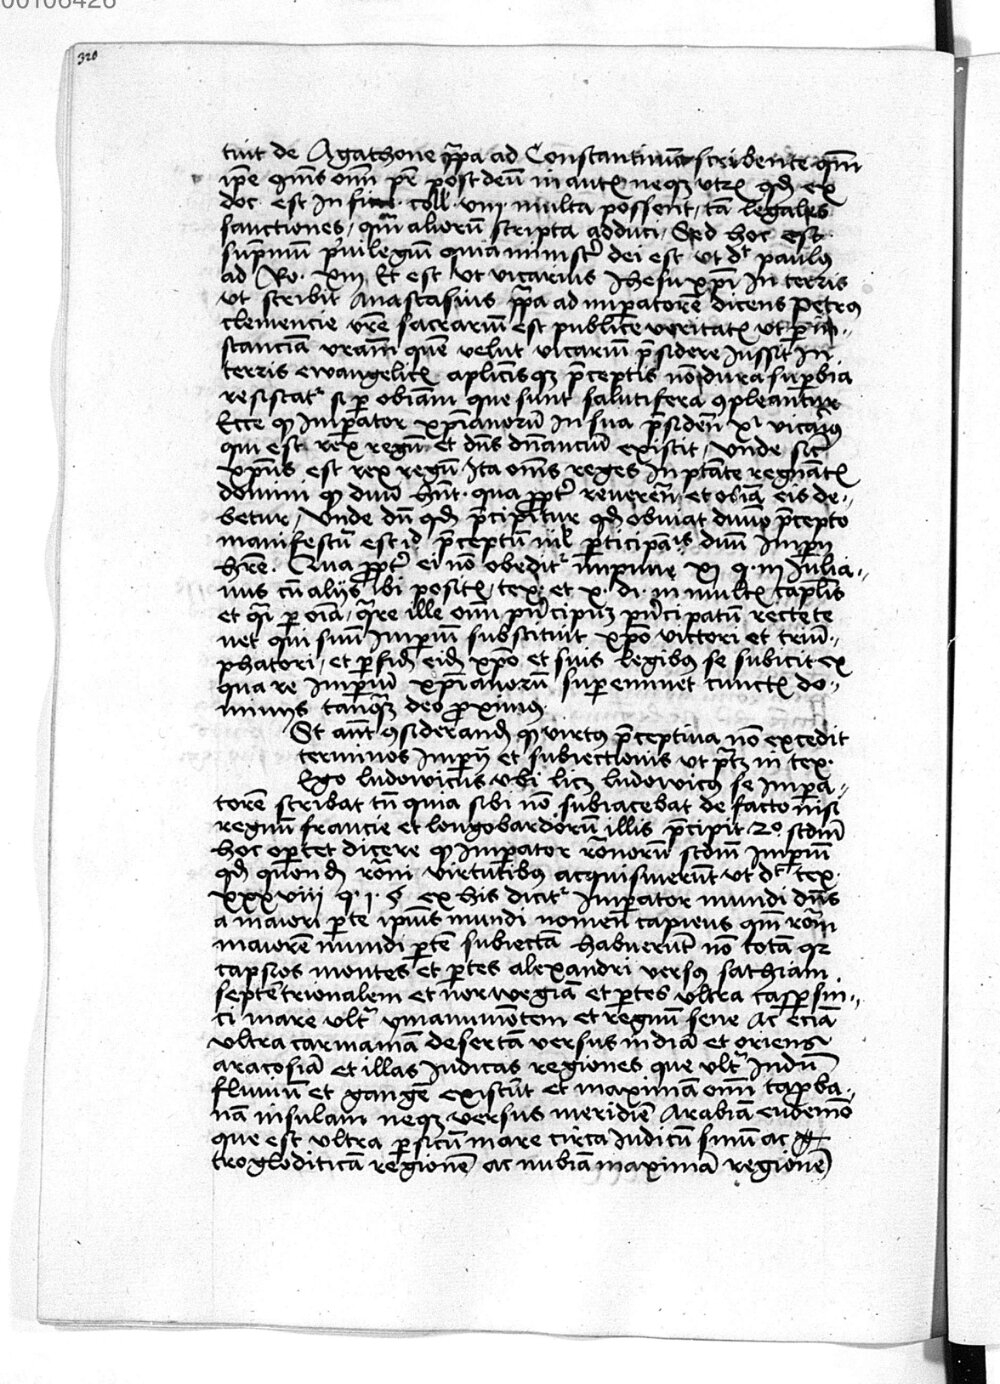 00106426
320
tuit de Agathone ppa ad Constantinum scribente qm
ipe oms om pre post deu in aut neqz utr qd ex
doc est in fine coll. viii multa possent, ta legales
sanctiones, qm alioru scripta adduci, Sed hoc est
supmum puilegiu quia minister dei est ut dt paulus
ad Ro. xiii Et est ut vicarius Jhesu xpi in terris
ut scribit Anastasius ppa ad impatore dicens Petrus
clemencie vre sacrariu est publice veritat ut p in-
stancia vram que velut vicariu psidere iussit in
terris ewangelic aplicisqz pceptis no dura supbia
resistat sz p obiam que sunt salutifera 9pleantur
Ecce qz Impator xpianoru in sua psiden xi vicarius
qui est rex regu et dns dnanciu existit, Unde sic
xpus est rex regu, Ita oms reges in ptate regnat
domini qz diuu hnt. qua ppt reueren et obia eis de-
betur, Unde du qd pcipitur qd obuiat diuo pcepto
manifestu est id pceptu nil pticipais diuu Impii
hre. Qua ppt ei no obedit impune xi q. iii Julia-
nus cu alijs ibi posit, tex. et x. di. in mult caplis
et qi p oia, qre ille om pncipuz pncipatu recte te
net qui suu Imperiu substituit xpo victori et trium-
phatori, et p fid eid xpo et suis legibus se subicit ex
qua re Imperiu xpianoru supeminet cunct do-
miniis tanqz deo proximus
St aut 9siderand qz virtus pceptiua no excedit
terminos Imperij et subiectionis ut ptz in tex.
Ego ludowicus ubi licz ludowicus se Impa-
tore scribat tn quia sibi no subiacebat de facto nisi
regnu francie et longobardoru illis pcipit 2o scdm
hoc oportet dicere qz Impator romoru scdm Imperiu
qd quond romi virtutibus acquisiuerunt ut dt tex.
xxxviii q. i. § ex his dicit Impator mundi dns
a maiori pte ipius mundi nomen capiens qm romi
maiore mundi pte subiecta habuerunt no tota qr
capsios montes et ptes alexandri versus sathiam
septentrionalem et norwegia et ptes ultra caspi sin-
ci mare ult ymauu montem et regnu sene Ac ecia
ultra carmania deserta versus india et oriens
aracosia et illas Indicas regiones que ult Indu
fluuiu et gange existut et maxima om tapba-
na insulam neqz versus meridie Arabia eudemo
que est ultra psicu mare circa Indicu sinu ac
trogloditica regione ac nubia maxima regione